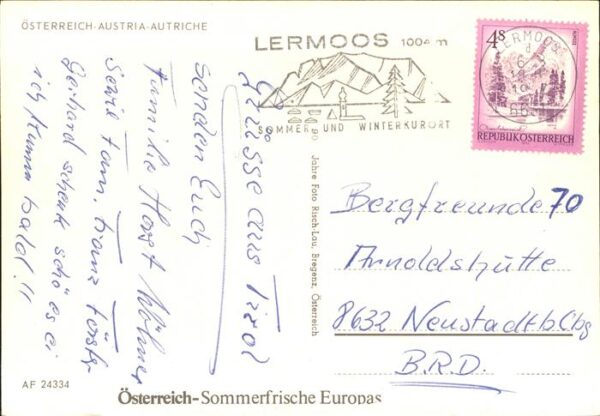 ÖSTERREICH-AUSTRIA-AUTRICHE
LERMOOS 1004 m
SOMMER UND WINTERKURORT
LERMOOS
4S
REPUBLIK ÖSTERREICH
Grüsse aus Tirol
senden Euch
Familie Horst Möhner
sowie Fam. Franz Förster
Gerhard schenk schö es ei
ich komm bald!!
90 Jahre Foto Risch-Lau, Bregenz, Österreich
Bergfreunde 70
Arnoldshütte
8632 Neustadt b. Cbg
B.R.D.
AF 24334
Österreich-Sommerfrische Europas